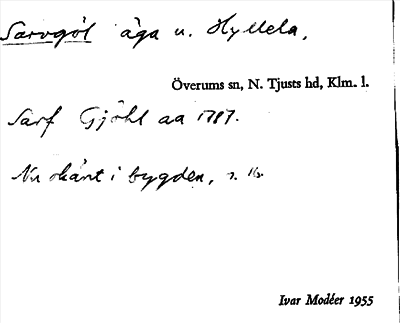 Sarvgöl äga u. Hyllela.
Överums sn, N. Tjusts hd, Klm. l.
Sarf Gjöhl aa 1787.
Nu okänt i bygden,
Ivar Modéer 1955